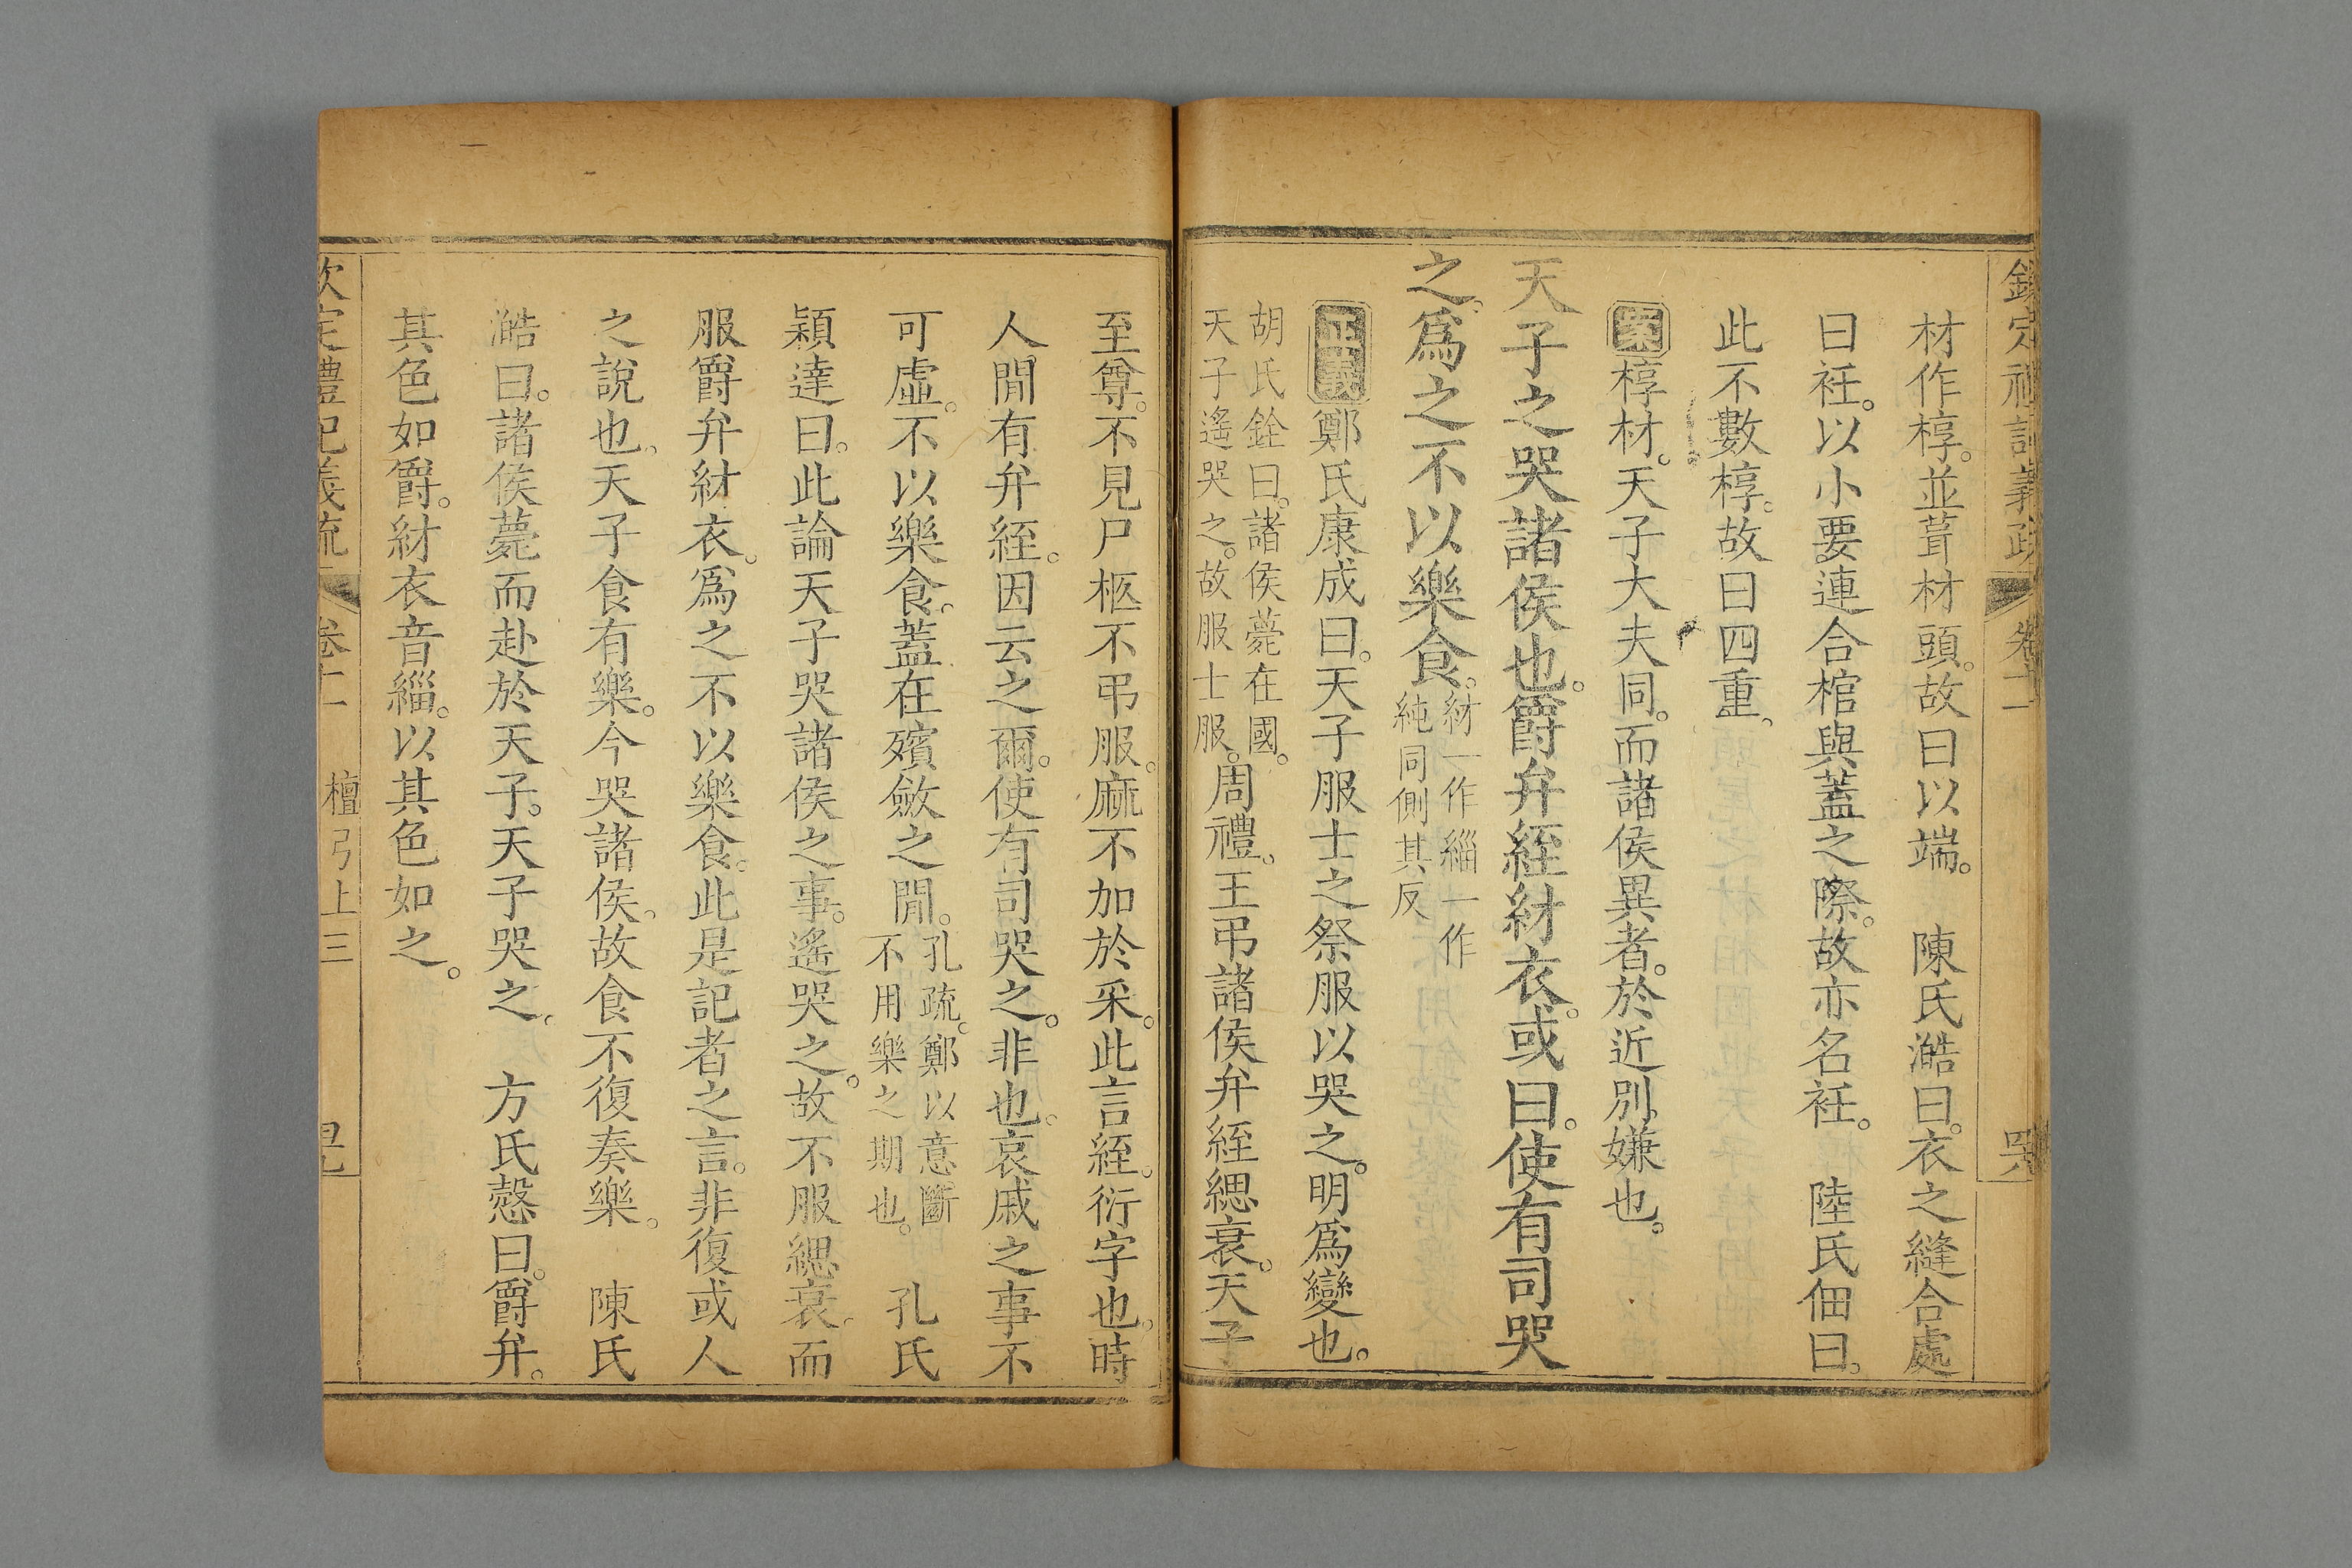 欽定禮記義疏 卷十二 罘
材作椁。並葺材頭。故曰以端。 陳氏澔曰。衣之縫合處
曰衽。以小要連合棺與蓋之際。故亦名衽。 陸氏佃曰。
此不數椁。故曰四重。
案椁材。天子大夫同。而諸侯異者。於近別嫌也。
天子之哭諸侯也。爵弁絰紂衣。或曰。使有司哭
之。爲之不以樂食。紂一作緇一作純同側其反
正義鄭氏康成曰。天子服士之祭服以哭之。明爲變也。
胡氏銓曰。諸侯薨在國。天子遙哭之。故服士服。周禮。王弔諸侯弁絰緦衰。天子
至尊。不見尸柩不弔服。麻不加於采。此言絰。衍字也。時
人閒有弁絰。因云之爾。使有司哭之。非也。哀戚之事不
可虛。不以樂食。蓋在殯斂之閒。孔疏。鄭以意斷不用樂之期也。 孔氏
穎達曰。此論天子哭諸侯之事。遙哭之。故不服緦衰。而
服爵弁紂衣。爲之不以樂食。此是記者之言。非復或人
之說也。天子食有樂。今哭諸侯。故食不復奏樂。 陳氏
澔曰。諸侯薨而赴於天子。天子哭之。 方氏慤曰。爵弁。
其色如爵。紂衣音緇。以其色如之。
欽定禮記義疏 卷十二 檀弓上三